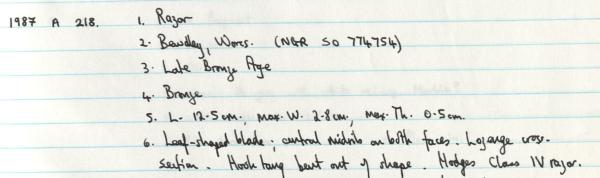 1987 A 218. 1. Razor
2. Bewdley, Worcs. (NGR SO 774754)
3. Late Bronze Age
4. Bronze
5. L- 12.5cm, max. W. 2.8cm, max. Th. 0.5cm
6. Leaf-shaped blade; central midrib on both faces. Lozenge cross-
section. Hook tang bent out of shape. Hodges Class IV razor.